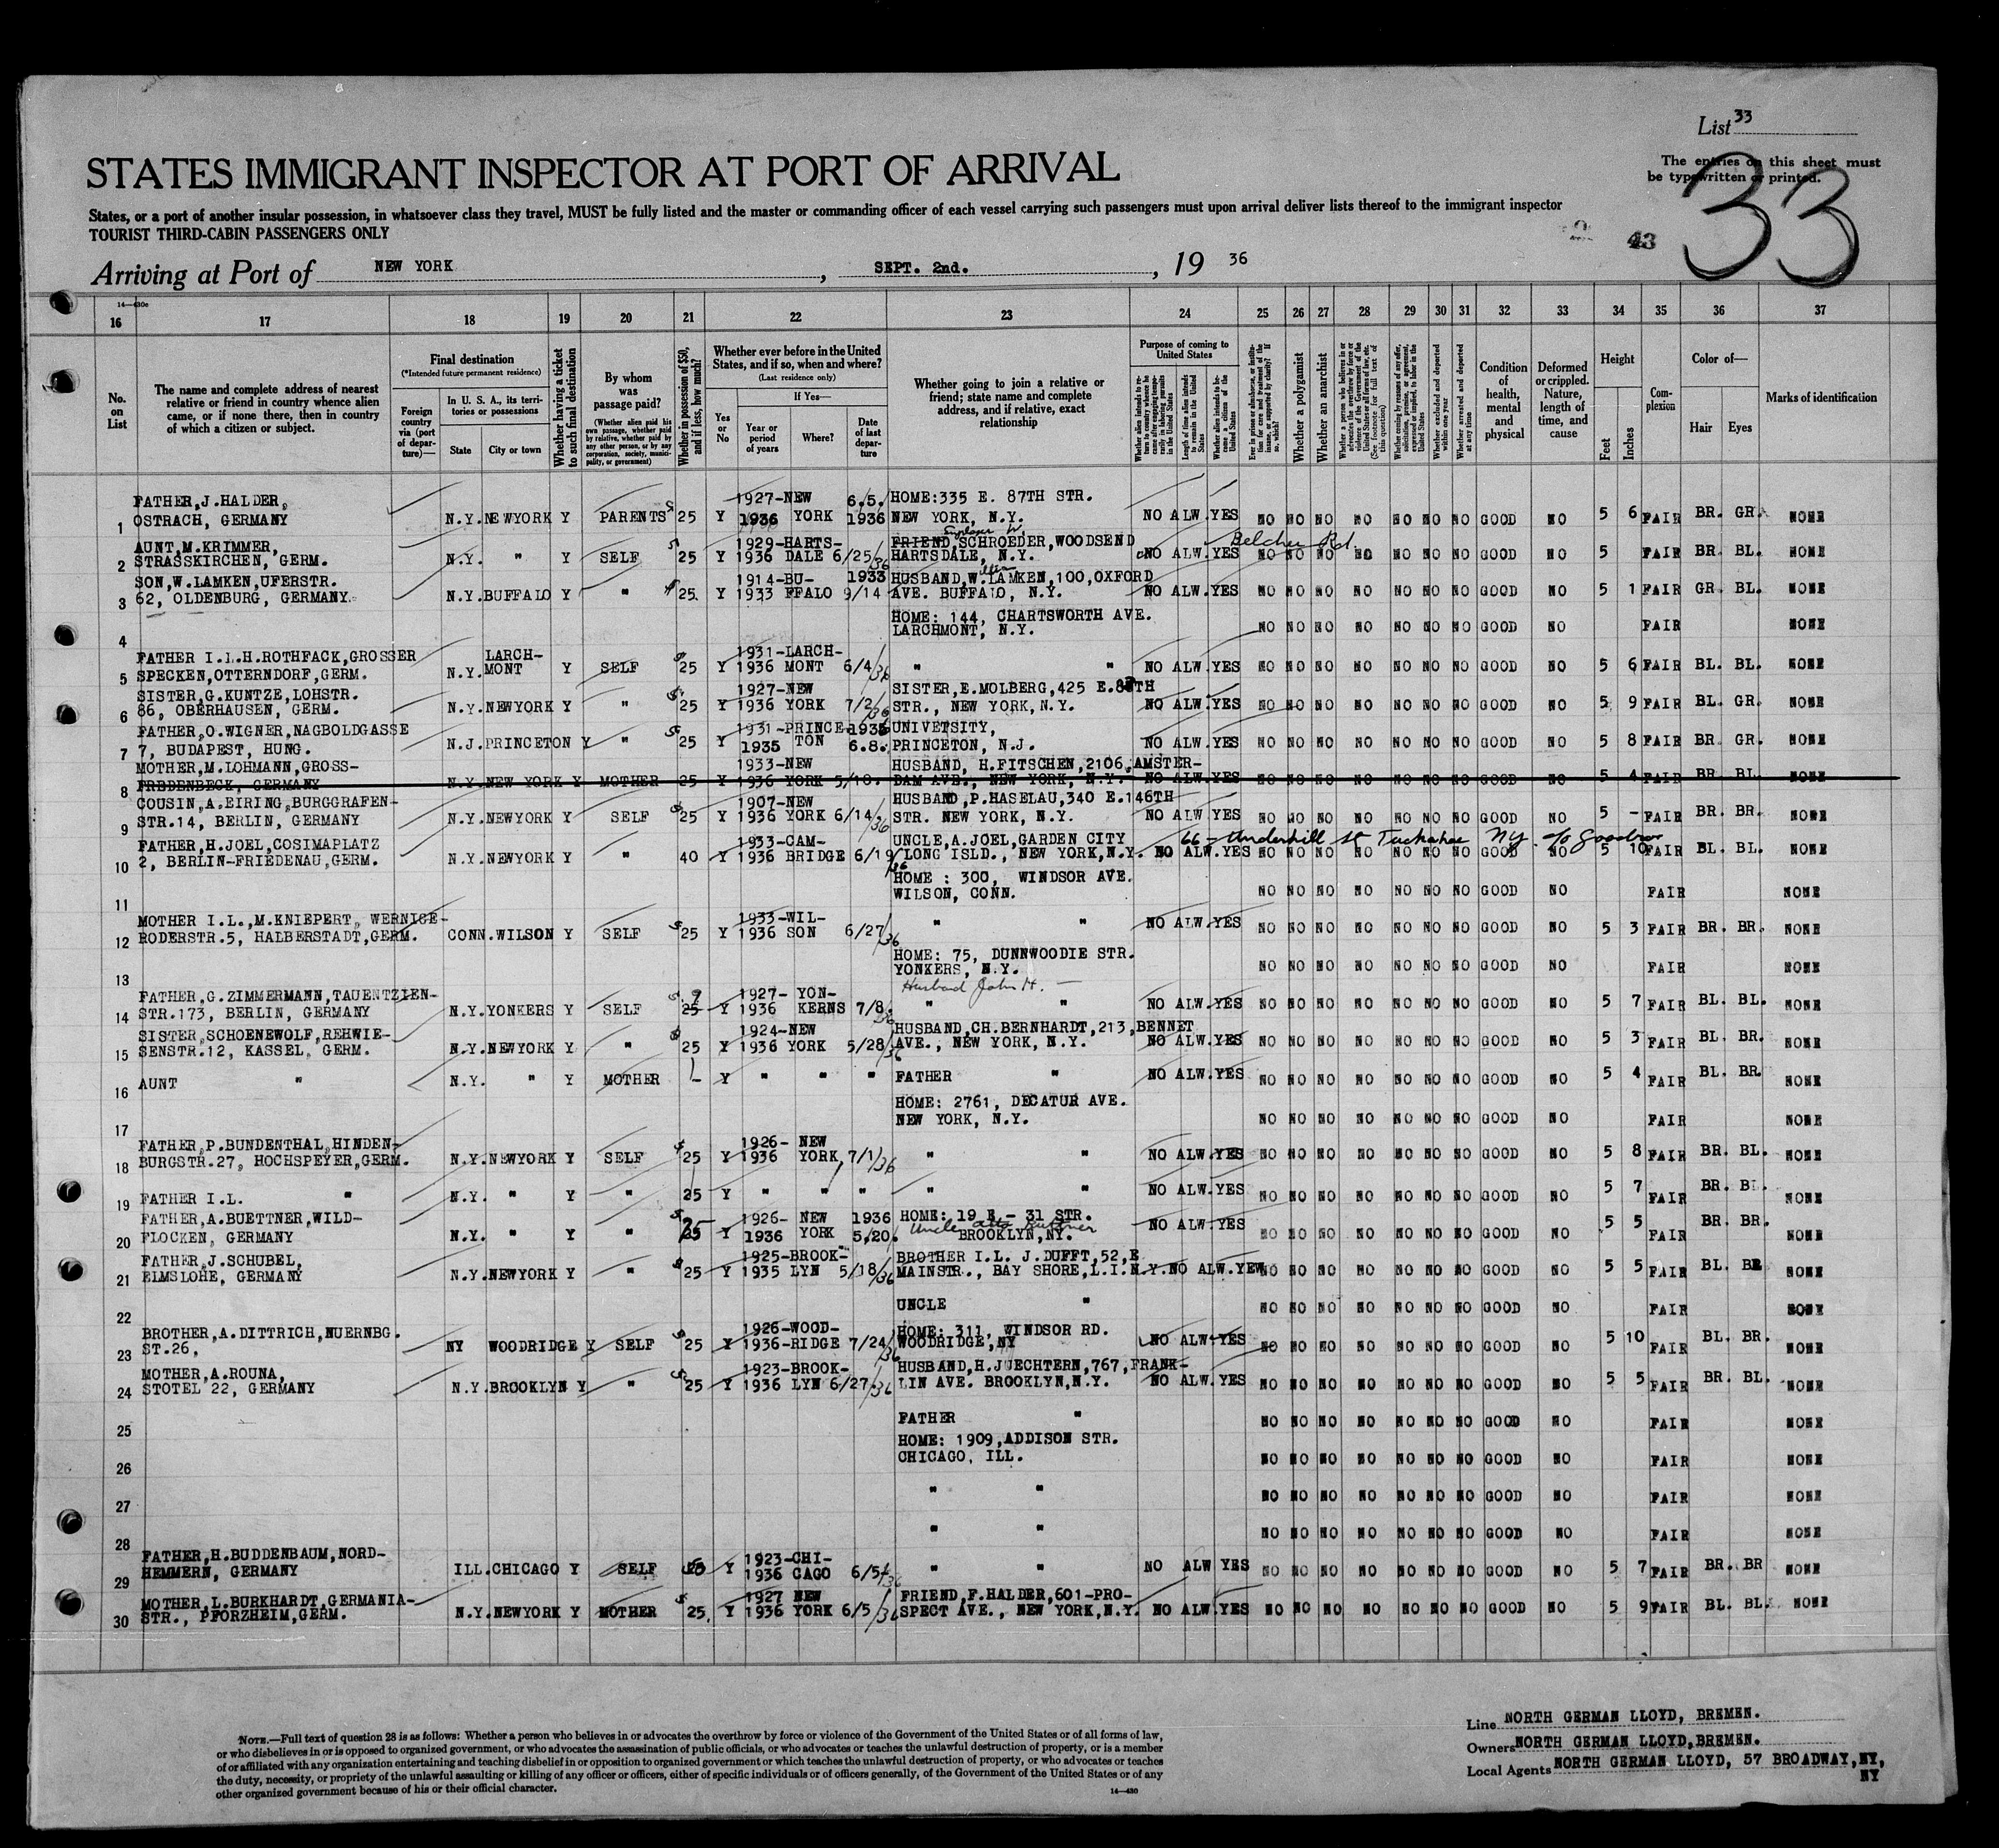 List 33
The entries on this sheet must
be typewritten or printed.
33
STATES IMMIGRANT INSPECTOR AT PORT OF ARRIVAL
States, or a port of another insular possession, in whatsoever class they travel, MUST be fully listed and the master or commanding officer of each vessel carrying such passengers must upon arrival deliver lists thereof to the immigrant inspector
TOURIST THIRD-CABIN PASSENGERS ONLY
43
Arriving at Port of NEW YORK, SEPT. 2nd., 19 36
14—430e
16 17 18 19 20 21 22 23 24 25 26 27 28 29 30 31 32 33 34 35 36 37
No. on List
The name and complete address of nearest relative or friend in country whence alien came, or if none there, then in country of which a citizen or subject.
Final destination
(*Intended future permanent residence)
Foreign country via (port of departure)—
In U. S. A., its territories or possessions
State
City or town
Whether having a ticket to such final destination
By whom was passage paid?
(Whether alien paid his own passage, whether paid by relative, whether paid by any other person, or by any corporation, society, municipality, or government)
Whether in possession of $50, and if less, how much?
Whether ever before in the United States, and if so, when and where?
(Last residence only)
Yes or No
If Yes—
Year or period of years
Where?
Date of last departure
Whether going to join a relative or friend; state name and complete address, and if relative, exact relationship
Purpose of coming to United States
Length of time alien intends to remain in the United States
Whether alien intends to become a citizen of the United States
Whether a polygamist
Whether an anarchist
Whether excluded and deported within one year
Whether arrested and deported at any time
Condition of health, mental and physical
Deformed or crippled. Nature, length of time, and cause
Height
Feet
Inches
Complexion
Color of—
Hair
Eyes
Marks of identification
FATHER,J.HALDER, 1927-NEW 6.5. HOME:335 E. 87TH STR.
1 OSTRACH, GERMANY N.Y. NEWYORK Y PARENTS 25 Y 1936 YORK 1936 NEW YORK, N.Y. NO ALW.YES NO NO NO NO NO NO NO GOOD NO 5 6 FAIR BR. GR. NONE
AUNT,M.KRIMMER, 1929-HARTS- FRIEND SCHROEDER,WOODSEND Belcher Rd.
2 STRASSKIRCHEN, GERM. N.Y. " Y SELF 25 Y 1936 DALE 6/25/36 HARTSDALE, N.Y. NO ALW.YES NO NO NO NO NO NO NO GOOD NO 5 FAIR BR. BL. NONE
SON,W.LAMKEN,UFERSTR. 1914-BU- 1933 HUSBAND,W.LAMKEN,100,OXFORD
3 62, OLDENBURG, GERMANY. N.Y. BUFFALO Y " 25 Y 1933 FFALO 9/14 AVE. BUFFALO, N.Y. NO ALW.YES NO NO NO NO NO NO NO GOOD NO 5 1 FAIR GR. BL. NONE
HOME: 144, CHARTSWORTH AVE.
4 LARCHMONT, N.Y. NO NO NO NO NO NO NO GOOD NO FAIR NONE
FATHER I.L.H.ROTHFACK,GROSSER LARCH- 1931-LARCH-
5 SPECKEN,OTTERNDORF,GERM. N.Y. MONT Y SELF 25 Y 1936 MONT 6/4/36 " " NO ALW.YES NO NO NO NO NO NO NO GOOD NO 5 6 FAIR BL. BL. NONE
SISTER,G.KUNTZE,LOHSTR. 1927-NEW SISTER,E.MOLBERG,425 E.87TH
6 86, OBERHAUSEN, GERM. N.Y. NEWYORK Y " 25 Y 1936 YORK 7/2/36 STR., NEW YORK,N.Y. NO ALW.YES NO NO NO NO NO NO NO GOOD NO 5 9 FAIR BL. GR. NONE
FATHER,O.WIGNER,NAGBOLDGASSE 1931-PRINCE- 1935 UNIVETSITY,
7 7, BUDAPEST, HUNG. N.J. PRINCETON Y " 25 Y 1935 TON 6.8. PRINCETON, N.J. NO ALW.YES NO NO NO NO NO NO NO GOOD NO 5 8 FAIR BR. GR. NONE
MOTHER,M.LOHMANN,GROSS- 1933-NEW HUSBAND, H.FITSCHEN,2106,AMSTER-
8 FREDENBECK, GERMANY N.Y. NEW YORK Y MOTHER 25 Y 1936 YORK 5/18. DAM AVE., NEW YORK, N.Y. NO ALW.YES NO NO NO NO NO NO NO GOOD NO 5 4 FAIR BR. BL. NONE
COUSIN,A.EIRING,BURGGRAFEN- 1907-NEW HUSBAND,P.HASELAU,340 E.146TH
9 STR.14, BERLIN, GERMANY N.Y. NEWYORK Y SELF 25 Y 1936 YORK 6/14/36 STR. NEW YORK, N.Y. NO ALW.YES NO NO NO NO NO NO NO GOOD NO 5 - FAIR BR. BR. NONE
FATHER,H.JOEL,COSIMAPLATZ 1933-CAM- UNCLE,A.JOEL,GARDEN CITY 66 - Underhill St Tuckahoe NY.
10 2, BERLIN-FRIEDENAU,GERM. N.Y. NEWYORK Y " 40 Y 1936 BRIDGE 6/19/36 LONG ISLD., NEW YORK,N.Y. NO ALW.YES NO NO NO NO NO NO NO GOOD NO 5 10 FAIR BL. BL. NONE
HOME : 300, WINDSOR AVE.
11 WILSON, CONN. NO NO NO NO NO NO NO GOOD NO FAIR NONE
MOTHER I.L.,M.KNIEPERT, WERNIGE- 1933-WIL- " "
12 RODERSTR.5, HALBERSTADT,GERM. CONN. WILSON Y SELF 25 Y 1936 SON 6/27/36 NO ALW.YES NO NO NO NO NO NO NO GOOD NO 5 3 FAIR BR. BR. NONE
HOME: 75, DUNNWOODIE STR.
13 YONKERS, N.Y. NO NO NO NO NO NO NO GOOD NO FAIR NONE
Husband John H. —
FATHER,G.ZIMMERMANN,TAUENTZIEN- 1927- YON- " "
14 STR.173, BERLIN, GERMANY N.Y. YONKERS Y SELF 25 Y 1936 KERNS 7/8. NO ALW.YES NO NO NO NO NO NO NO GOOD NO 5 7 FAIR BL. BL. NONE
SISTER,SCHOENEWOLF,REHWIE- 1924-NEW HUSBAND,CH.BERNHARDT,213,BENNET
15 SENSTR.12, KASSEL, GERM. N.Y. NEWYORK Y " 25 Y 1936 YORK 5/28/36 AVE., NEW YORK, N.Y. NO ALW.YES NO NO NO NO NO NO NO GOOD NO 5 3 FAIR BL. BR. NONE
16 AUNT " N.Y. " Y MOTHER - Y " " " FATHER " NO ALW.YES NO NO NO NO NO NO NO GOOD NO 5 4 FAIR BL. BR. NONE
HOME: 2761, DECATUR AVE.
17 NEW YORK, N.Y. NO NO NO NO NO NO NO GOOD NO FAIR NONE
FATHER,P.BUNDENTHAL,HINDEN- 1926- NEW
18 BURGSTR.27, HOCHSPEYER,GERM. N.Y. NEWYORK Y SELF 25 Y 1936 YORK, 7/1/36 " " NO ALW.YES NO NO NO NO NO NO NO GOOD NO 5 8 FAIR BR. BL. NONE
19 FATHER I.L. " N.Y. " Y " 25 Y " " " " " NO ALW.YES NO NO NO NO NO NO NO GOOD NO 5 7 FAIR BR. BL. NONE
FATHER,A.BUETTNER,WILD- 1926- NEW 1936 HOME: 19 E - 31 STR.
20 FLOCKEN, GERMANY N.Y. " Y " 25 Y 1936 YORK 5/20. Uncle Otto Buttner BROOKLYN,NY. NO ALW.YES NO NO NO NO NO NO NO GOOD NO 5 5 FAIR BR. BR. NONE
FATHER,J.SCHUBEL, 1925-BROOK- BROTHER I.L. J.DUFFT,52,E
21 ELMSLOHE, GERMANY N.Y. NEWYORK Y " 25 Y 1935 LYN 5/18/36 MAINSTR., BAY SHORE,L.I.N.Y. NO ALW.YEW NO NO NO NO NO NO NO GOOD NO 5 5 FAIR BL. BR NONE
22 UNCLE " NO NO NO NO NO NO NO GOOD NO FAIR NONE
BROTHER,A.DITTRICH,NUERNBG. 1926-WOOD- HOME: 311, WINDSOR RD.
23 ST.26, NY WOODRIDGE Y SELF 25 Y 1936-RIDGE 7/24/36 WOODRIDGE,NY NO ALW-YES NO NO NO NO NO NO NO GOOD NO 5 10 FAIR BL. BR. NONE
MOTHER,A.ROUNA, 1923-BROOK- HUSBAND,H.JUECHTERN,767,FRANK-
24 STOTEL 22, GERMANY N.Y. BROOKLYN Y " 25 Y 1936 LYN 6/27/36 LIN AVE. BROOKLYN,N.Y. NO ALW.YES NO NO NO NO NO NO NO GOOD NO 5 5 FAIR BR. BL. NONE
25 FATHER " NO NO NO NO NO NO NO GOOD NO FAIR NONE
HOME: 1909,ADDISON STR.
26 CHICAGO, ILL. NO NO NO NO NO NO NO GOOD NO FAIR NONE
27 " " NO NO NO NO NO NO NO GOOD NO FAIR NONE
28 " " NO NO NO NO NO NO NO GOOD NO FAIR NONE
FATHER,H.BUDDENBAUM,NORD- 1923-CHI-
29 HEMMERN, GERMANY ILL. CHICAGO Y SELF Y 1936 CAGO 6/5/36 " " NO ALW YES NO NO NO NO NO NO NO GOOD NO 5 7 FAIR BR. BR NONE
MOTHER,L.BURKHARDT,GERMANIA- 1927 NEW FRIEND,F.HALDER,601-PRO-
30 STR., PFORZHEIM,GERM. N.Y. NEWYORK Y MOTHER 25. Y 1936 YORK 6/5/36 SPECT AVE., NEW YORK,N.Y. NO ALW.YES NO NO NO NO NO NO NO GOOD NO 5 9 FAIR BL. BL. NONE
NOTE.—Full text of question 28 is as follows: Whether a person who believes in or advocates the overthrow by force or violence of the Government of the United States or of all forms of law,
or who disbelieves in or is opposed to organized government, or who advocates the assassination of public officials, or who advocates or teaches the unlawful destruction of property, or is a member
of or affiliated with any organization entertaining and teaching disbelief in or opposition to organized government or which teaches the unlawful destruction of property, or who advocates or teaches
the duty, necessity, or propriety of the unlawful assaulting or killing of any officer or officers, either of specific individuals or of officers generally, of the Government of the United States or of any
other organized government because of his or their official character.
14—430
Line NORTH GERMAN LLOYD, BREMEN.
Owners NORTH GERMAN LLOYD,BREMEN.
Local Agents NORTH GERMAN LLOYD, 57 BROADWAY,NY,
NY